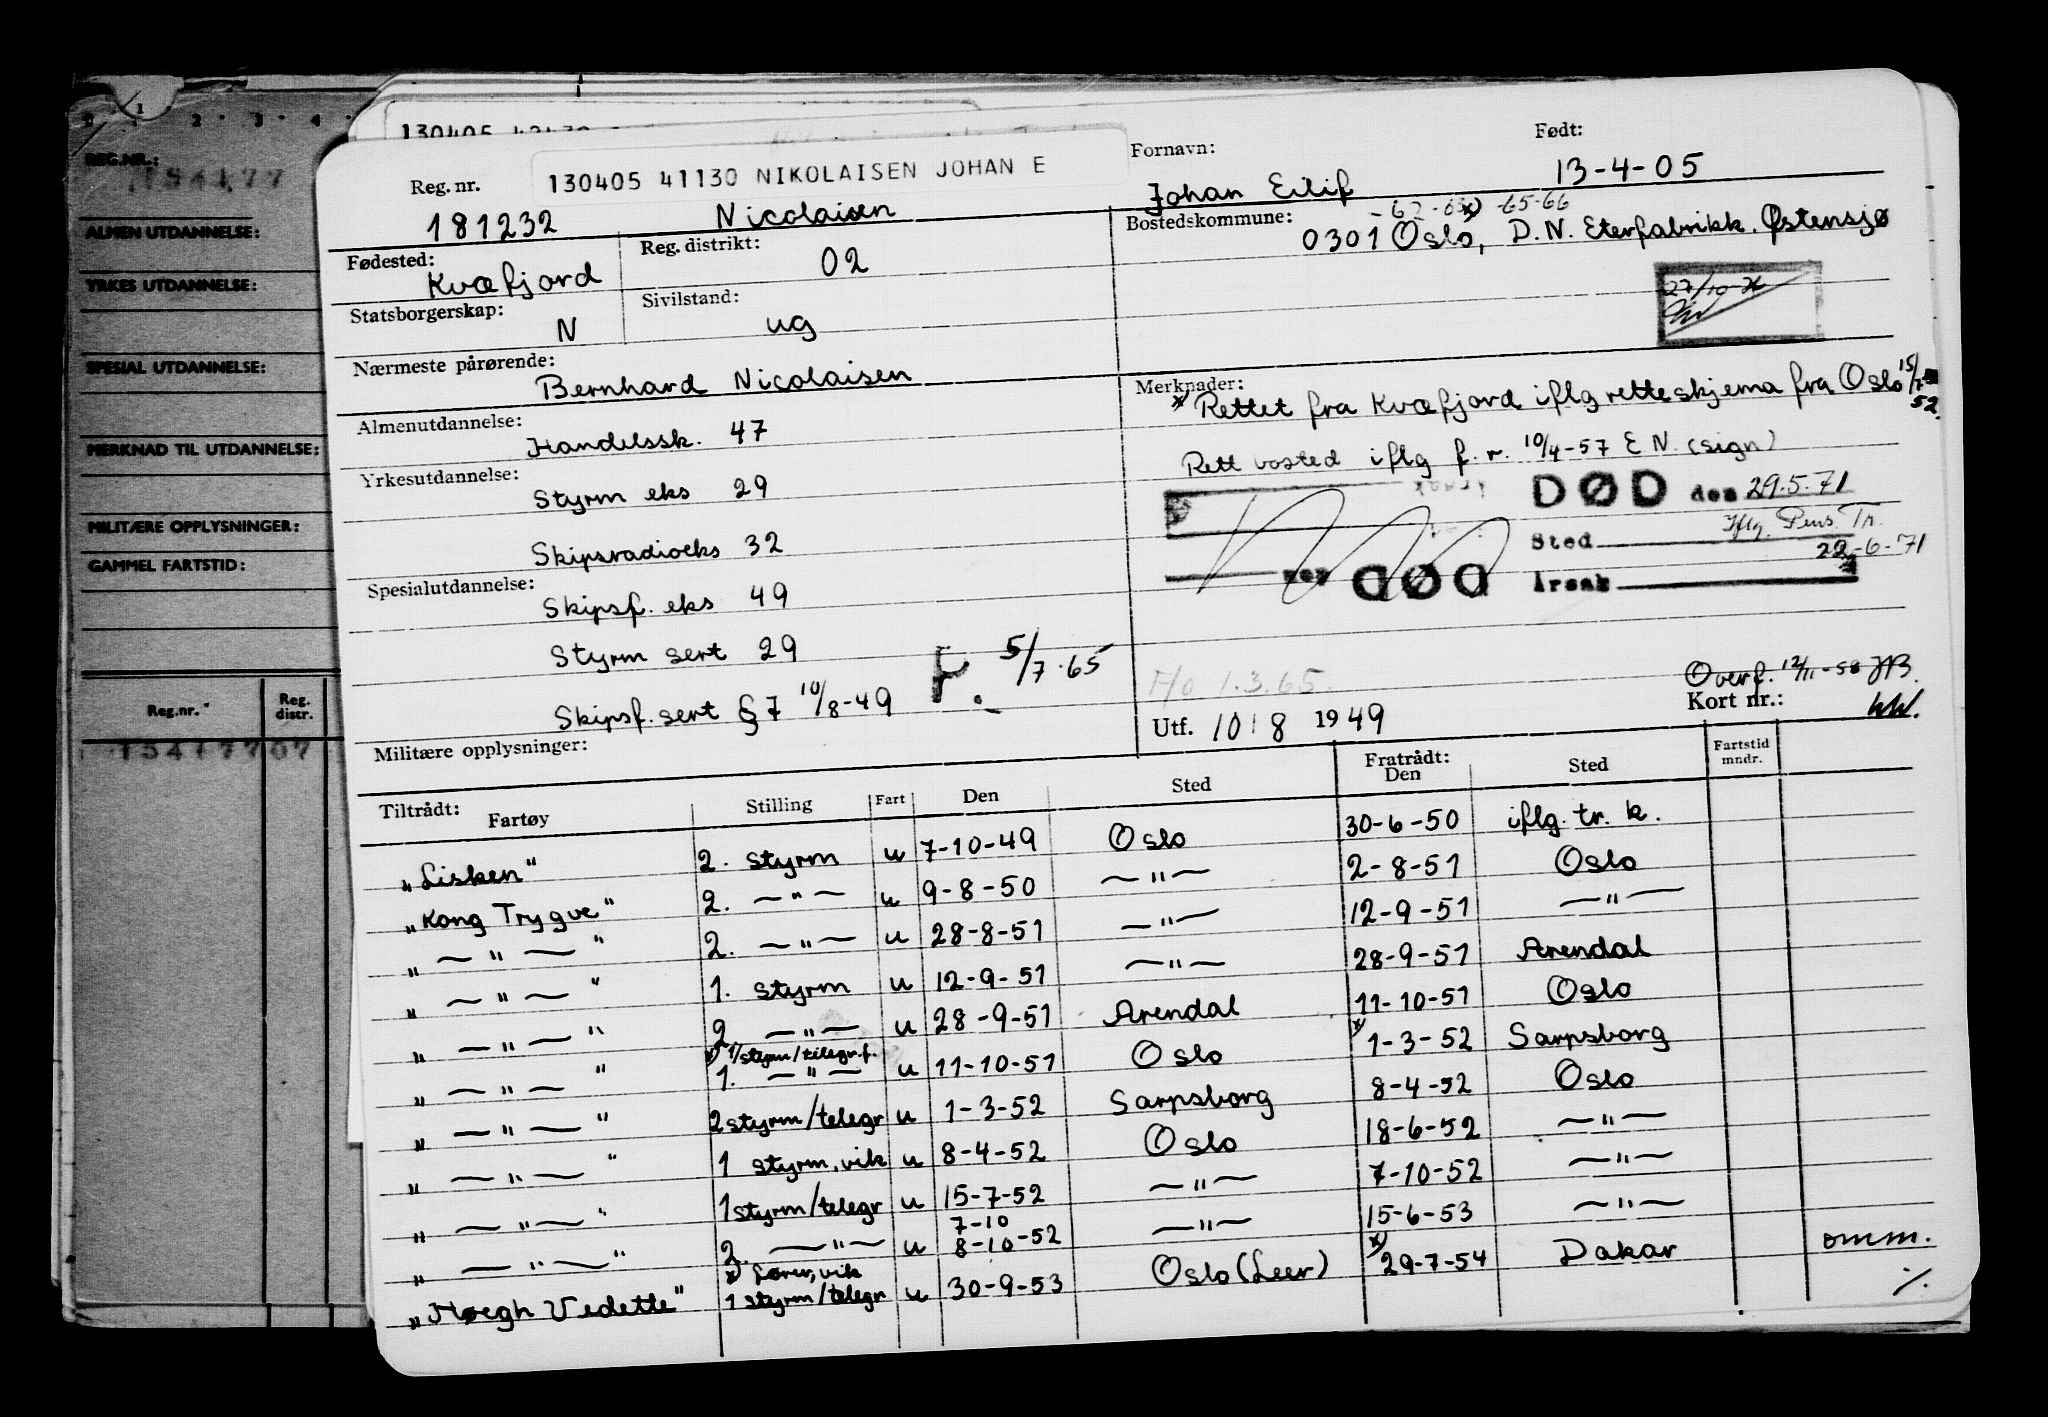 2 1 1 2 · 3 · 4
REG.NR.:
154177
ALMEN UTDANNELSE:
YRKES UTDANNELSE:
SPESIAL UTDANNELSE:
MERKNAD TIL UTDANNELSE:
MILITÆRE OPPLYSNINGER:
GAMMEL FARTSTID:
Reg.nr. Reg. distr.
154177 07
130405
Reg. nr. 130405 41130 NIKOLAISEN JOHAN E Fornavn: Født:
181232 Nicolaisen Johan Eilif 13-4-05
-62-63 -65-66
Fødested: Kvæfjord Reg. distrikt: 02 Bostedskommune: 0301 Oslo, D.N. Eterfabrikk. Østensjø
Statsborgerskap: N Sivilstand: ug
27/10-
Nærmeste pårørende: Bernhard Nicolaisen
Merknader: x) Rettet fra Kvæfjord iflg retteskjema fra Oslo 15/7 52.
Almenutdannelse: Handelssk. 47
Rett bosted iflg f. r. 10/4-57 E N. (sign)
Yrkesutdannelse: Styrm eks 29
DØD den 29.5.71
Skipsradioeks 32
Sted Iflg. Pens. Tr.
22-6-71
DØD Årsak
Spesialutdannelse: Skipsf. eks 49
Styrm sert 29
Skipsf. sert § 7 10/8-49 P. 5/7-65
1.3.65.
Overf. 12/11-58 JB.
Utf. 10/8 1949 Kort nr.:
Militære opplysninger:
Tiltrådt: Fartøy Stilling Fart Den Sted Fratrådt: Den Sted Fartstid mndr.
"Lisken" 2. styrm u 7-10-49 Oslo 30-6-50 iflg. tr. k.
"Kong Trygve" 2. —"— u 9-8-50 —"— 2-8-51 Oslo
" —"— " 2. —"— u 28-8-51 —"— 12-9-51 —"—
" —"— " 1. styrm u 12-9-51 —"— 28-9-51 Arendal
" —"— " 2. —"— u 28-9-51 Arendal 11-10-51 Oslo
x) 1/styrm/telegr.f.
" —"— " 1. —"— u 11-10-51 Oslo x) 1-3-52 Sarpsborg
" —"— " 2 styrm/telegr u 1-3-52 Sarpsborg 8-4-52 Oslo
" —"— " 1 styrm, vik u 8-4-52 Oslo 18-6-52 —"—
" —"— " 1 styrm/telegr u 15-7-52 —"— 7-10-52 —"—
7-10
" —"— " 2. —"— u 8-10-52 —"— 15-6-53 —"—
"Høegh Vedette" 1 styrm/telegr u 30-9-53 Oslo (Leer) x) 29-7-54 Dakar omm.
·/.